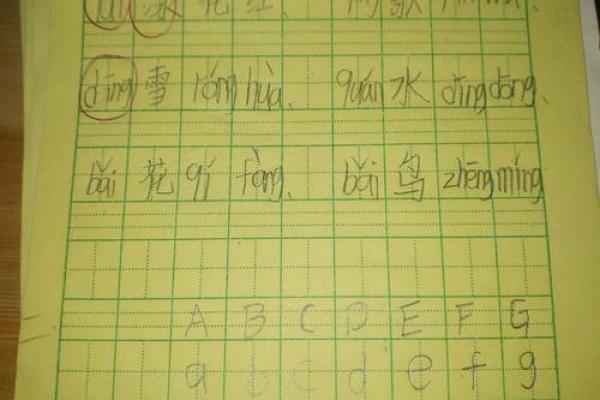 绿花红、
dīng雪róng huà、quán水dīng dōng、
bǎi花qí fàng、bǎi鸟zhēng míng
A B C D E F G
a b c d e f g